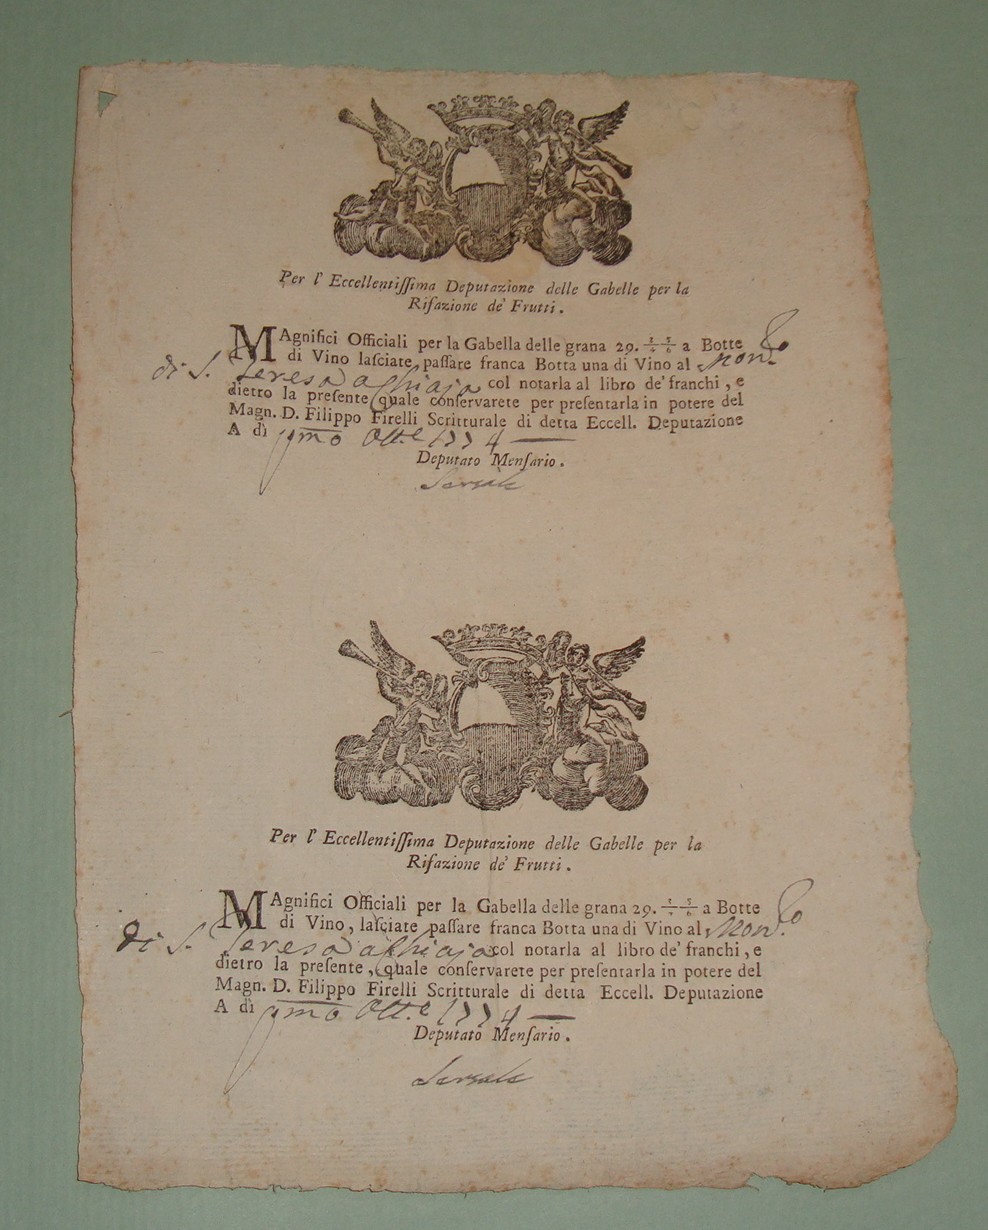 Per l' Eccellentiſſima Deputazione delle Gabelle per la
Rifazione de' Frutti.
MAgnifici Officiali per la Gabella delle grana 29. a Botte
di Vino laſciate paſſare franca Botta una di Vino al Mon.ro
di S. Teresa a Chiaja col notarla al libro de' franchi, e
dietro la preſente quale conſervarete per preſentarla in potere del
Magn. D. Filippo Firelli Scritturale di detta Eccell. Deputazione
A dì pmo Ott.e 1774
Deputato Menſario.
Sersale
Per l' Eccellentiſſima Deputazione delle Gabelle per la
Rifazione de' Frutti.
MAgnifici Officiali per la Gabella delle grana 29. a Botte
di Vino, laſciate paſſare franca Botta una di Vino al Mon.ro
di S. Teresa a Chiaja col notarla al libro de' franchi, e
dietro la preſente, quale conſervarete per preſentarla in potere del
Magn. D. Filippo Firelli Scritturale di detta Eccell. Deputazione
A dì pmo Ott.e 1774
Deputato Menſario.
Sersale